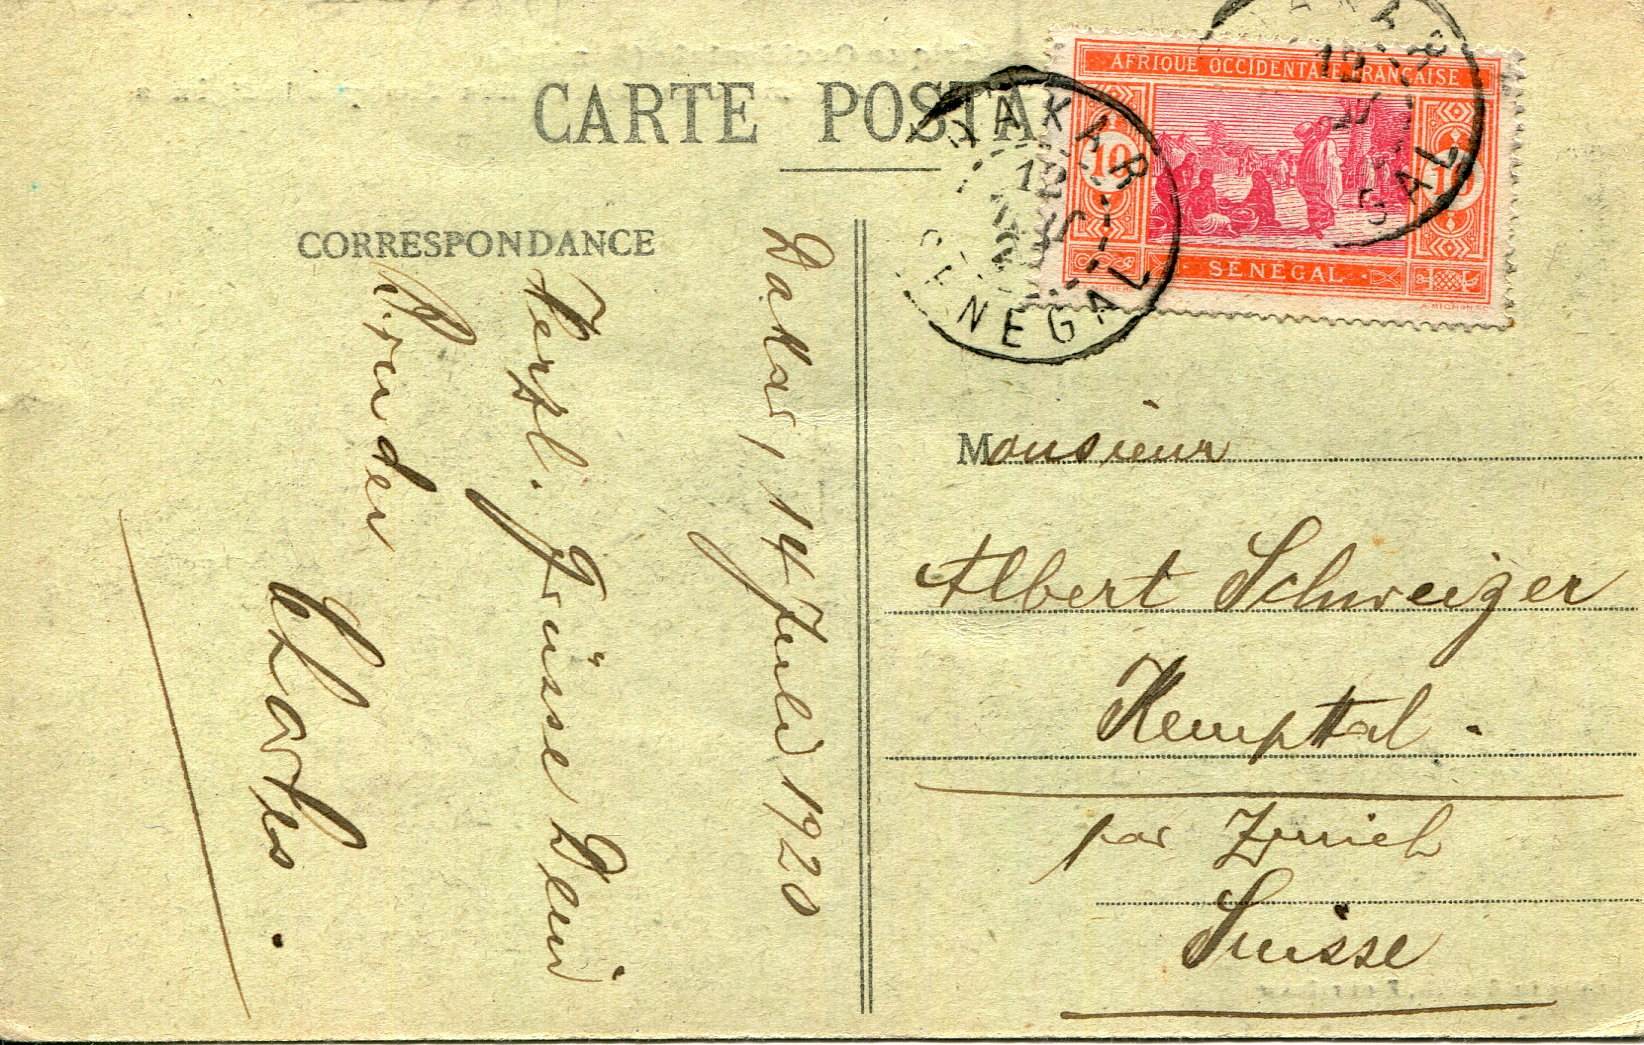 CARTE POSTA
AFRIQUE OCCIDENTALE FRANÇAISE
10
10
SENEGAL
DAKAR
12
SENEGAL
DAKAR
12
GAL
CORRESPONDANCE
Dakar, 14 Juli 1920
Herzl. Grüsse Dein
Bruder
Charles.
Monsieur
Albert Schweizer
Kemptal.
par Zurich
Suisse